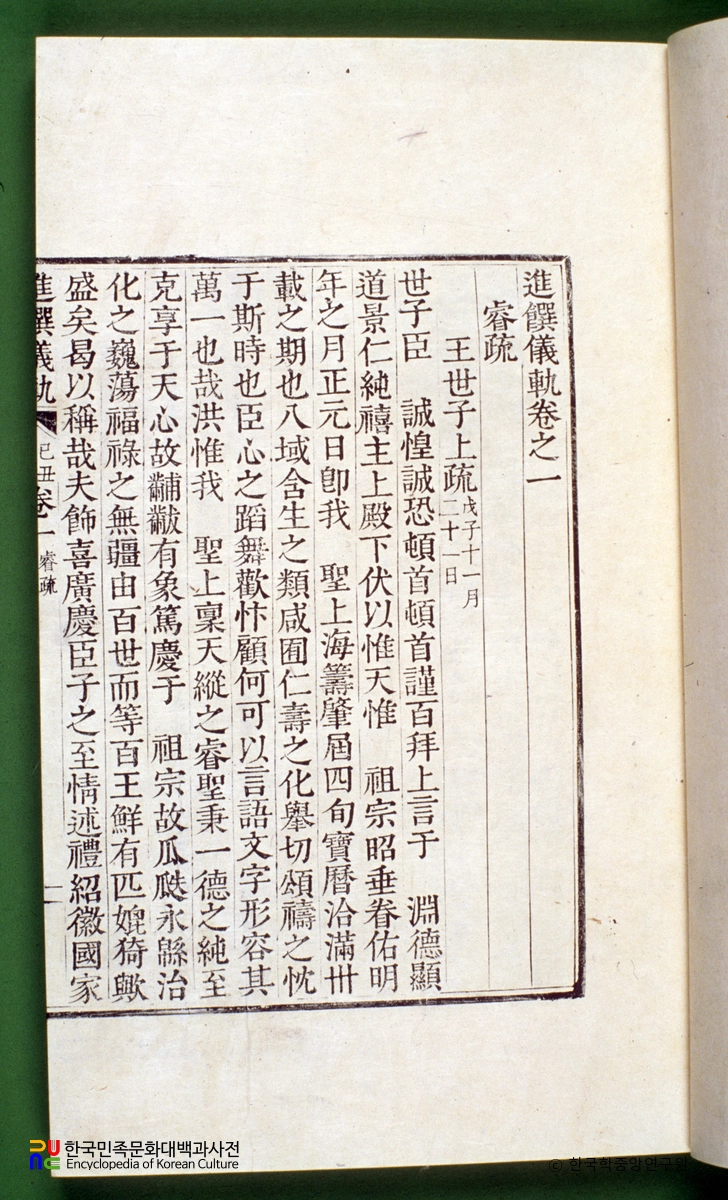 進饌儀軌卷之一
睿疏
王世子上疏戊子十一月二十一日
世子臣 誠惶誠恐頓首頓首謹百拜上言于 淵德顯
道景仁純禧主上殿下伏以惟天惟 祖宗昭垂眷佑明
年之月正元日卽我 聖上海籌肇屆四旬寶曆洽滿卅
載之期也八域含生之類咸囿仁壽之化擧切頌禱之忱
于斯時也臣心之蹈舞歡忭顧何可以言語文字形容其
萬一也哉洪惟我 聖上稟天縱之睿聖秉一德之純至
克享于天心故黼黻有象篤慶于 祖宗故瓜瓞永緜治
化之巍蕩福祿之無疆由百世而等百王鮮有匹媲猗歟
盛矣曷以稱哉夫飾喜廣慶臣子之至情述禮紹徽國家
進饌儀軌 己丑 卷一 睿疏 一
한국민족문화대백과사전
Encyclopedia of Korean Culture
© 한국학중앙연구원